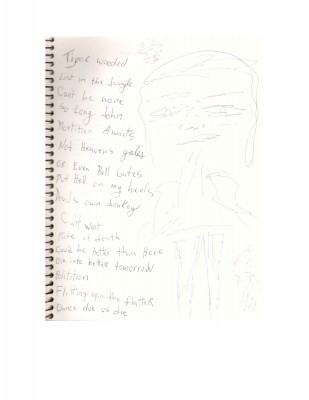 Tiger wooded
Lost in the Jungle
Can't be none
So Long John
Mortition Awaits
Not Heavens gates
OR Even Bill Gates
But Hell on my heels
own donkey
Can't wait
at death
Could be better than Here
Die into better tomorrow
Flitting upon the
Dance due us die